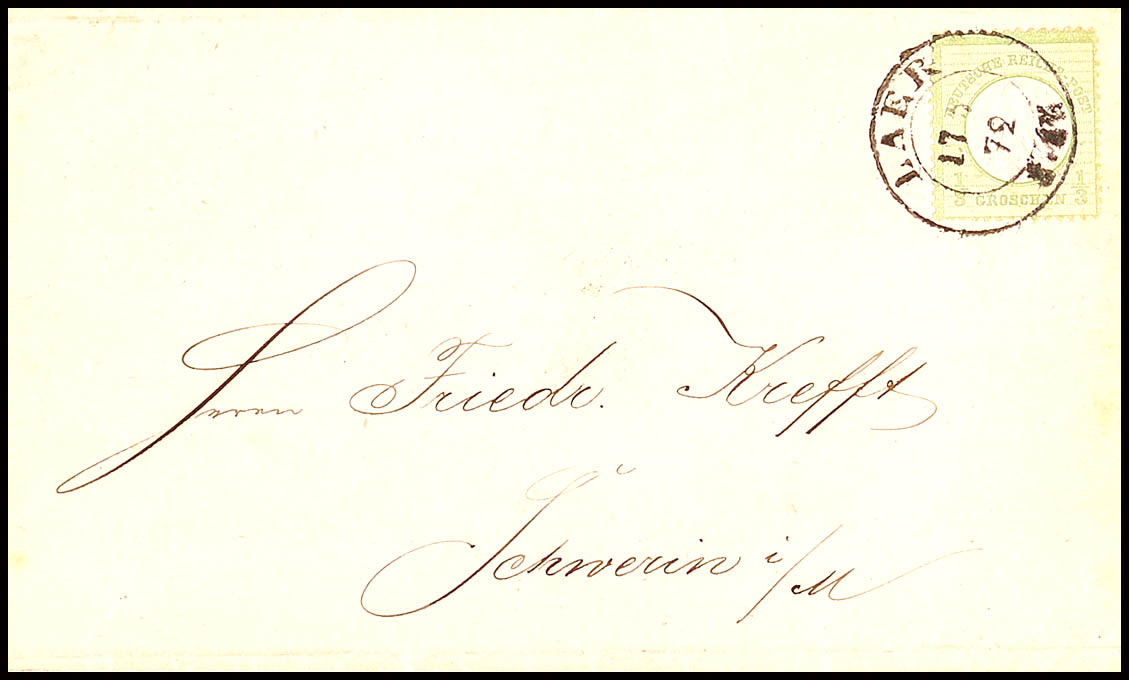 LAER
17 72
DEUTSCHE REICHS-POST
1/3 GROSCHEN 1/3
Herrn Friedr. Krefft
Schwerin i/M